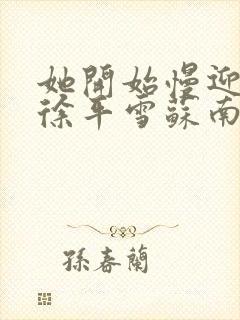 她開始慢迎
徐平雪蘇南
孫春蘭